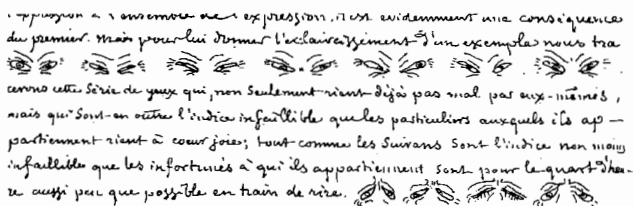 l'expression à l'ensemble de l'expression, il est évidemment une conséquence
du premier. Mais pour lui donner l'éclaircissement d'un exemple nous tra
cerons cette série de yeux qui, non seulement rient déjà pas mal par eux-mêmes,
mais qui sont en outre l'indice infaillible que les particuliers auxquels ils ap-
partiennent rient à cœur joie; tout comme les suivans sont l'indice non moins
infaillible que les infortunés à qui ils appartiennent sont pour le quart d'heu-
re aussi peu que possible en train de rire.